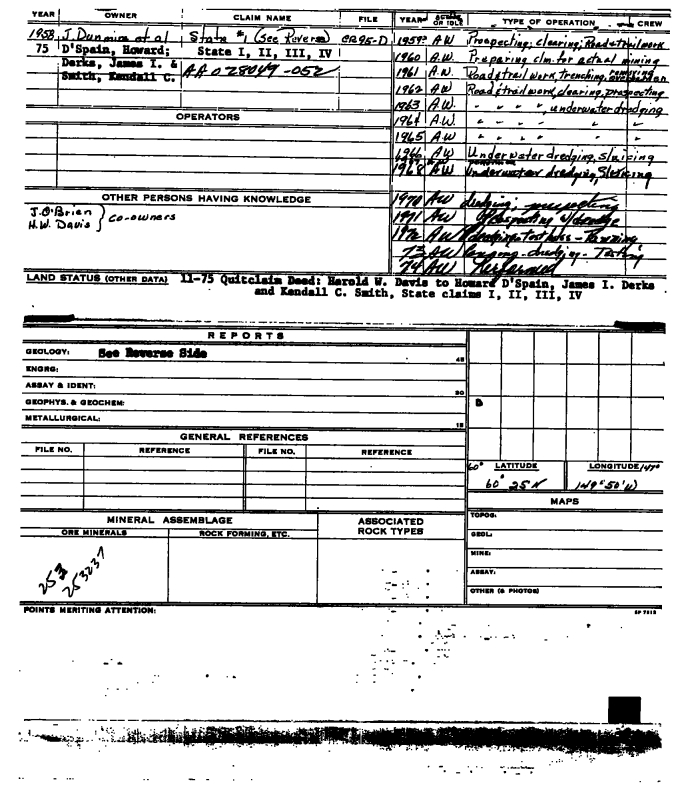 YEAR OWNER CLAIM NAME FILE YEAR ACTIVE OR IDLE TYPE OF OPERATION CREW
1958 J. Dunmire et al State #1 (See Reverse) CR95-D 1959? AW Prospecting; clearing; Road & trail work
75 D'Spain, Howard; State I, II, III, IV 1960 AW Preparing clm. for actual mining
Derks, James I. & AA028049-052 1961 A.W. Road & trail work, trenching,
Smith, Kendall C. 1962 AW Road & trail work, clearing, prospecting
1963 AW " " " ", underwater dredging
OPERATORS 1964 A.W. " " " " "
1965 AW " " " " "
1966 AW Underwater dredging, sluicing
1968 AW Underwater dredging, Sluicing
OTHER PERSONS HAVING KNOWLEDGE 1970 AW dredging; prospecting
J. O'Brien 1971 AW Prospecting w/dredge
H.W. Davis } co-owners 1972 AW dredging test holes - Panning
73 AW dredging - Testing
74 AW Performed
LAND STATUS (OTHER DATA) 11-75 Quitclaim Deed: Harold W. Davis to Howard D'Spain, James I. Derks
and Kendall C. Smith, State claims I, II, III, IV
REPORTS
GEOLOGY: See Reverse Side 45
ENGRG:
ASSAY & IDENT: 30
GEOPHYS. & GEOCHEM: D
METALLURGICAL: 15
GENERAL REFERENCES
FILE NO. REFERENCE FILE NO. REFERENCE
60° LATITUDE LONGITUDE 149°
60° 25 N 149° 50' W
MAPS
MINERAL ASSEMBLAGE ASSOCIATED ROCK TYPES TOPOG:
ORE MINERALS ROCK FORMING, ETC. GEOL:
MINE:
253 253237 ASSAY:
OTHER (& PHOTOS)
POINTS MERITING ATTENTION: